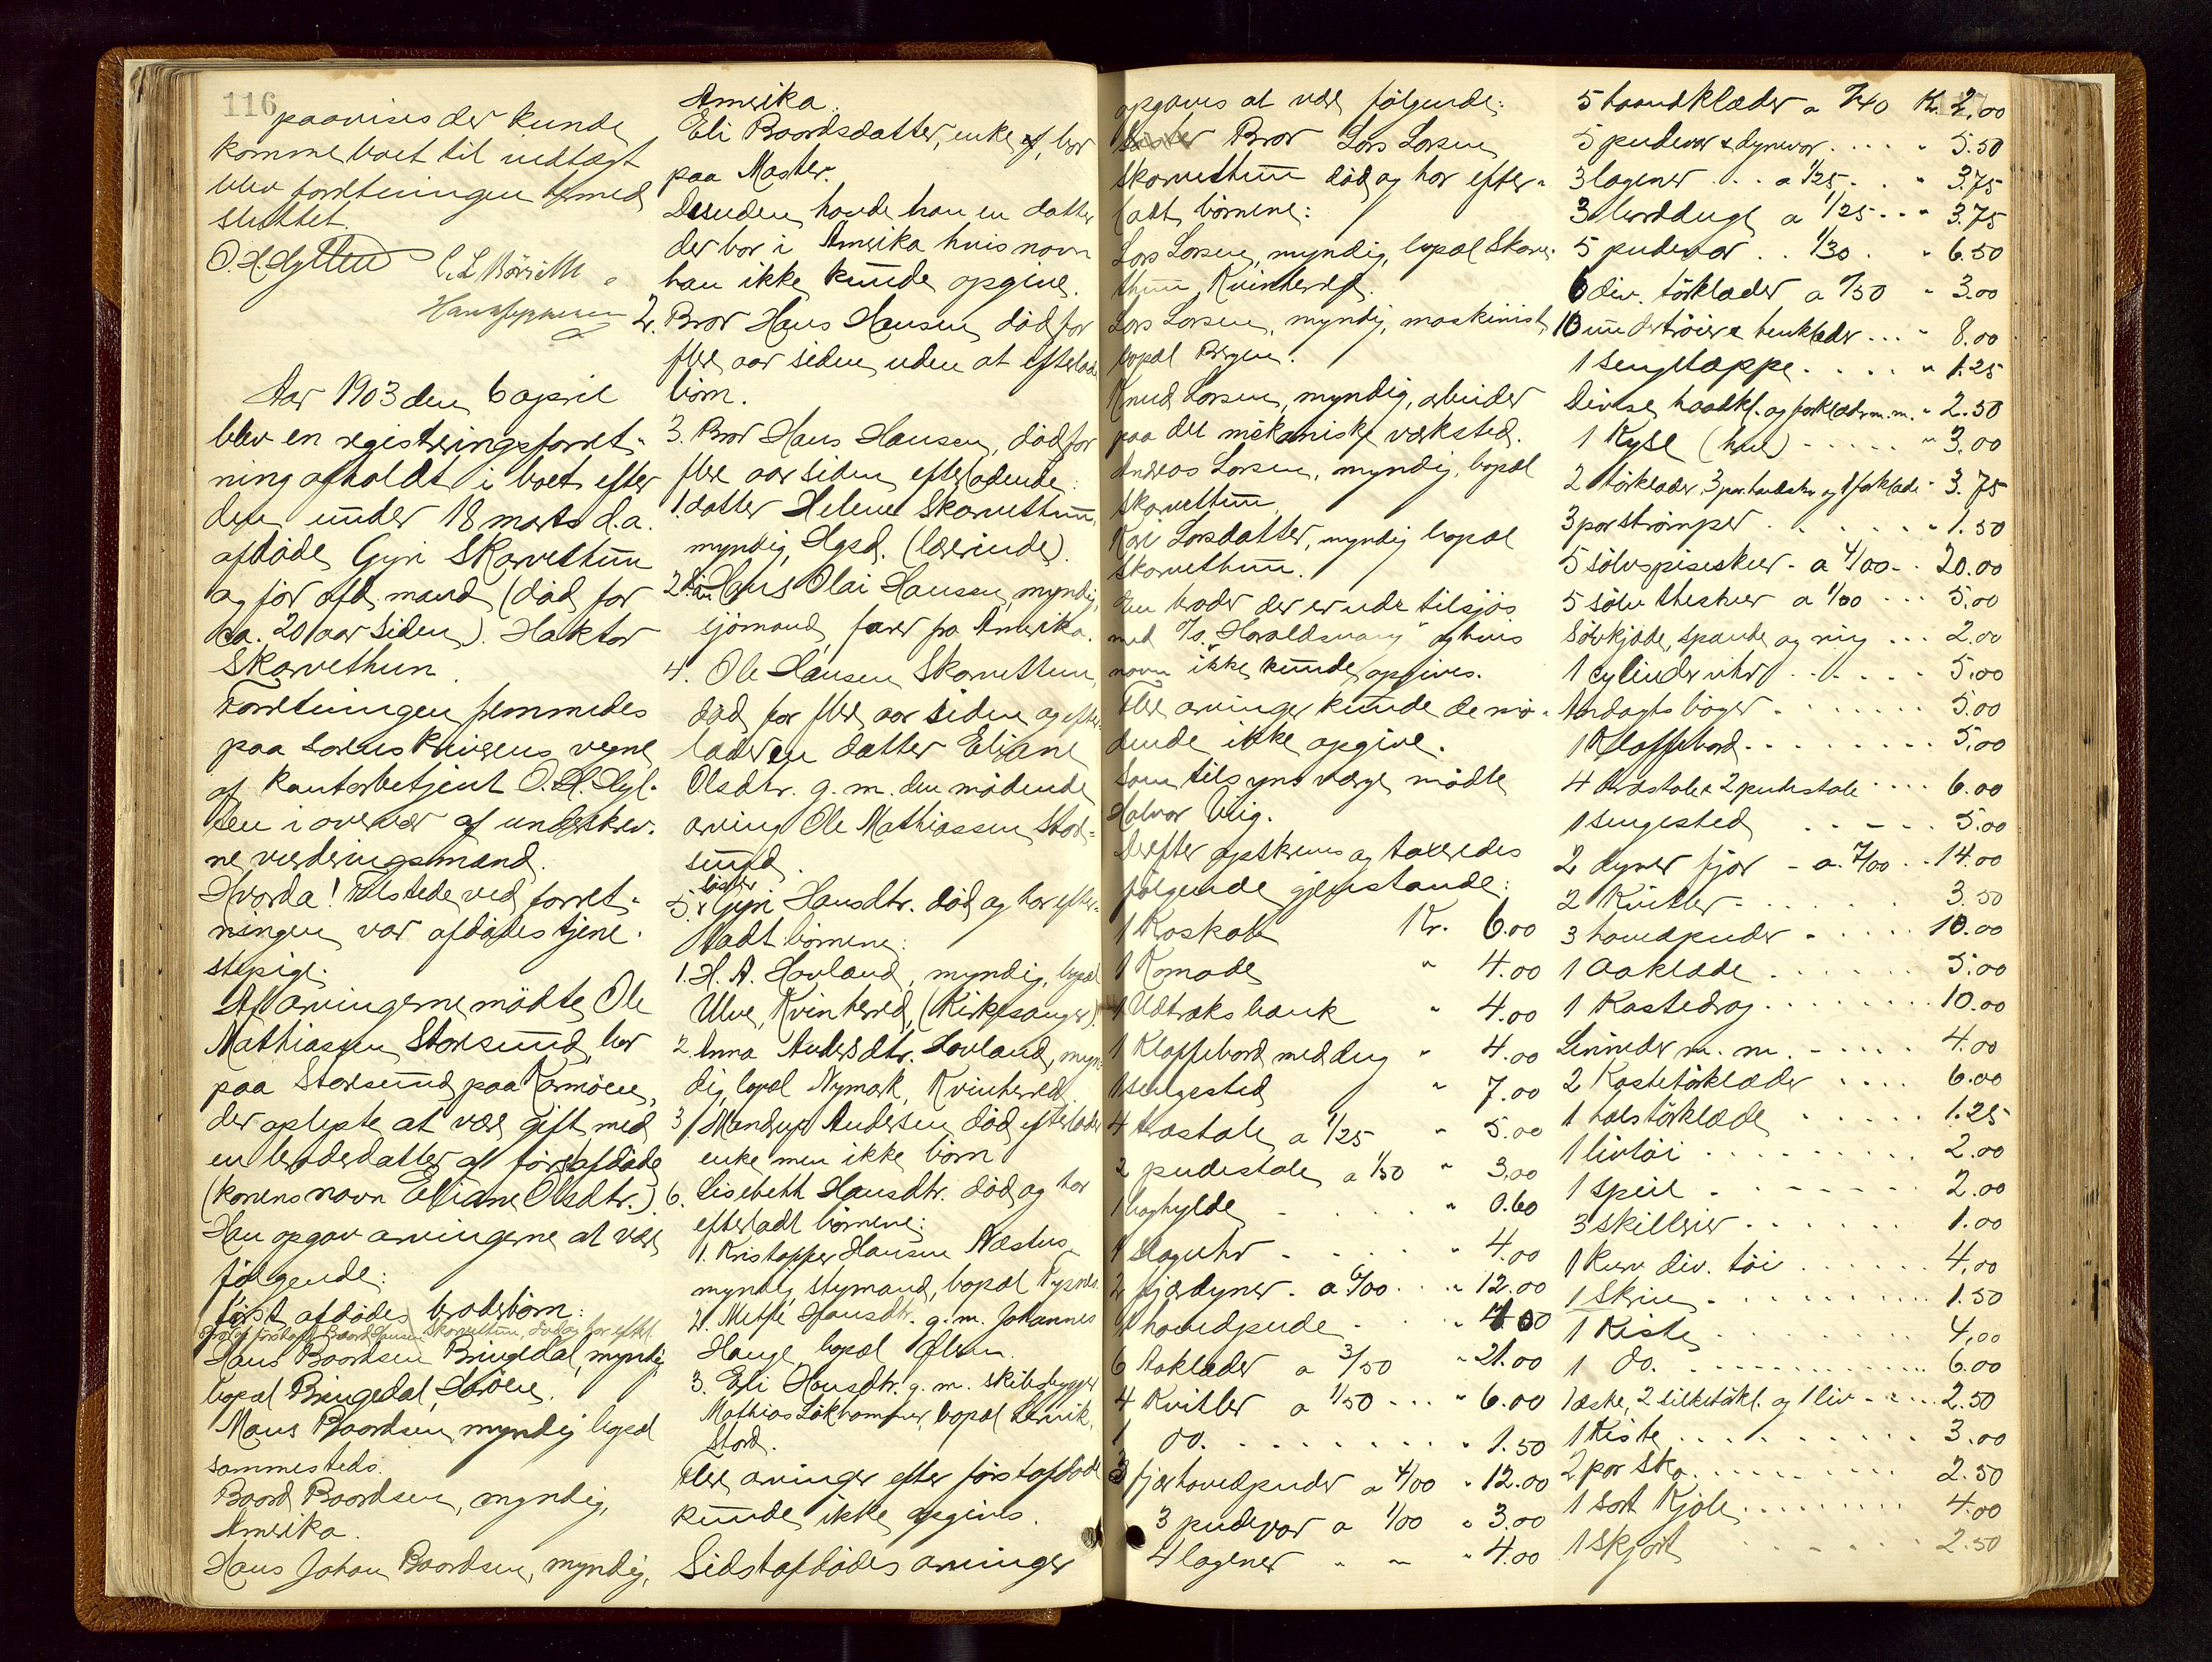 116
paavises der kunde
komme boet til indtægt
blev forretningen hermed
sluttet.
O. H. Hylten
Aar 1903 den 6 april
blev en registeringsforret-
ning afholdt i boet efter
den under 18 marts d.a.
afdöde Gyri Skorvethun
og för afd. mand (död for
ca. 20 aar siden). Haktor
Skorvethun.
Forretningen fremmedes
paa sorenskriverens vegne
af Kontorbetjent O. H. Hyl-
ten i overvær af underskrev-
ne vurderingsmænd.
Hvorda! Tilstede ved forret-
ningen var afdödes tjene-
stepige.
Af arvingerne mödte Ole
Mathiassen Storesund, bor
paa Storesund paa Karmöen,
der oplyste at være gift med
en broderdatter af förstafdöde
(konens navn Elliane Olsdtr.)
Han opgav arvingerne at være
følgende:
först afdödes broderbörn:
Hans Boordsen Bringedal, myndig
bopæl Bringedal,
Mons Boordsen, myndig bopæl
sammesteds.
Boord Boordsen, myndig,
Amerika.
Hans Johan Boordsen, myndig,
Amerika.
Eli Boordsdatter, enke, bor
paa Moster.
Desuden havde han en datter
der bor i Amerika hvis navn
han ikke kunde opgive.
2. Bror Hans Hansen, död for
flere aar siden uden at efterlade
börn.
3. Bror Hans Hansen, död for
flere aar siden efterladende:
1. datter Helene Skorvethun,
myndig, Hgsd. (lærerinde).
2. Hans Olai Hanssen, myndig,
sjömand, farer fra Amerika.
4. Ole Hansen Skorvethun,
död for flere aar siden og efter
lader en datter Eliane
Olsdtr. g.m. den mödende
arving Ole Mathiassen Store-
sund.
söster
5. Gyri Hansdtr. död og har efter-
ladt börnene:
1. H. A. Hovland, myndig, bopæl
Ulve, Kvinherred, (Kirkesanger).
2. Anna Andersdtr. Hovland, myn-
dig, bopæl Nymark, Kvinherred.
3. Mandrup Andersen död, efterlader
enke men ikke börn
6. Lisebeth Hansdtr. död og har
efterladt börnene:
1. Kristoffer Hansen Næstus
myndig, styrmand, bopæl
2. Hansdtr. g.m. Johannes
Hauge, bopæl Ölen.
3. Eli Hansdtr. g.m. skibsbygger
Mathias Lökhammer, bopæl
Stord.
Flere arvinger efter förstafdöde
kunde ikke opgives.
Sidstafdödes arvinger
opgaves at være følgende:
Bror Lars Larsen
Skorvethun död og har efter-
ladt börnene:
Lars Larsen, myndig, bopæl Skorve-
thun, Kvinherred.
Lars Larsen, myndig, maskinist,
bopæl Bergen.
Knud Larsen, myndig, arbeider
paa det mekaniske værksted.
Andreas Larsen, myndig, bopæl
Skorvethun.
Kari Larsdatter, myndig bopæl
Skorvethun.
En broder der er ude tilsjös
med "Haraldsvang" og hvis
navn ikke kunde opgives.
Flere arvinger kunde de mö-
dende ikke opgive.
Som tilsynsværge mödte
Halvor Vig.
Derefter opskreves og taxeredes
følgende gjenstande:
1 Koskab Kr. 6.00
1 Komode " 4.00
1 Udtræksbænk " 4.00
1 Klaffebord med dug " 4.00
1 sengested " 7.00
4 træstole a 1/25 " 5.00
2 pudestole a 1/50 " 3.00
1 boghylde " 0.60
1 slaguhr " 4.00
2 fjærdyner a 6/00 " 12.00
1 hovedpude " 4.00
6 aaklæder a 3/50 " 21.00
4 Kvitler a 1/50 " 6.00
1 do. " 1.50
3 fjærhovedpuder a 4/00 " 12.00
3 pudevar a 1/00 " 3.00
4 lagener " 4.00
5 haandklæder a 0/40 Kr. 2.00
5 pudevar & dynevar " 5.50
3 lagener a 1/25 " 3.75
3 borddug a 1/25 " 3.75
5 pudevar 1/30 " 6.50
6 div. törklæder a 0/50 " 3.00
10 undertröier & benklæder " 8.00
1 sengetæppe " 1.25
Diverse haandkl. og forklæder m.m. " 2.50
1 Kyse (hue) " 3.00
2 törklæder, 3 par handsker og 1 forklæde " 3.75
3 par strömper " 1.50
5 sölvspiseskeer a 4/00 20.00
5 sölv theskeer a 1/00 5.00
Sölvkjæde, spænde og ring 2.00
1 cylinder uhr 5.00
Andagts böger 5.00
1 Klaffebord 5.00
4 træstole & 2 pudestole 6.00
1 sengested 5.00
2 dyner fjær a 7/00 14.00
2 Kvitler 3.50
3 hovedpuder 10.00
1 aaklæde 5.00
1 Kastedrag 10.00
Linneder m.m. 4.00
2 Kastetörklæder 6.00
1 halstörklæde 1.25
1 livtöi 2.00
1 speil 2.00
3 skillerier 1.00
1 Kurv div. töi 4.00
1 Skrin 1.50
1 Kiste 4.00
1 do. 6.00
1 æske, 2 silketörkl. og 1 liv 2.50
1 Kiste 3.00
2 par sko 2.50
1 sort Kjole 4.00
1 skjört 2.50